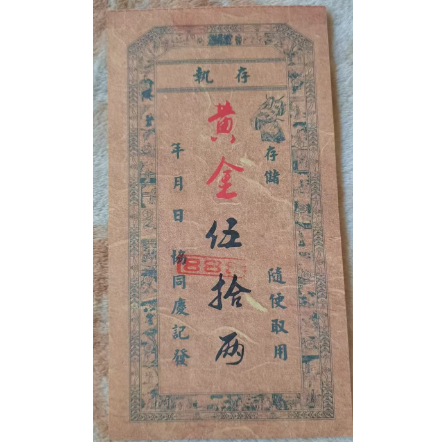 執存
黄金伍拾两
存儲
隨使取用
年月日協同慶記發
888